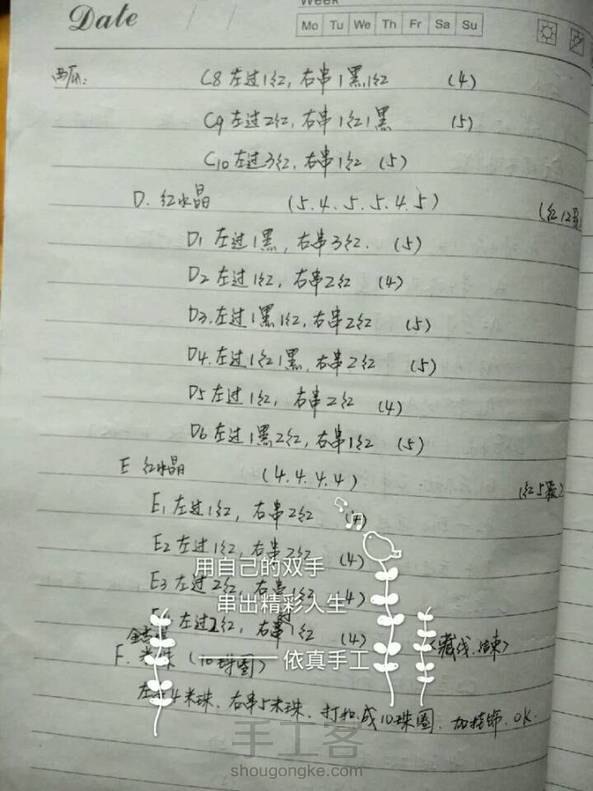 Date
Week
Mo Tu We Th Fr Sa Su
西瓜:
C8 左过1红, 右串1黑,1红 (4)
C9 左过2红, 右串1红1黑 (5)
C10 左过3红, 右串1红 (5)
D. 红水晶 (5.4.5.5.4.5) (红12颗
D1 左过1黑, 右串3红. (5)
D2 左过1红, 右串2红 (4)
D3. 左过1黑1红, 右串2红 (5)
D4. 左过1红1黑, 右串2红 (5)
D5 左过1红, 右串2红 (4)
D6 左过1黑2红, 右串1红 (5)
E 红水晶 (4.4.4.4) (红5颗)
E1 左过1红, 右串2红 (4)
E2 左过1红, 右串2红 (4)
用自己的双手
E3 左过2红, 右串1红 (4)
串出精彩人生
左过2红, 右串1红 (4)
<藏线.结束>
F. 米珠 (10珠圈)
依真手工
左 4米珠, 右串5米珠, 打扣成10珠圈. 加装饰. OK.
手工客
shougongke.com